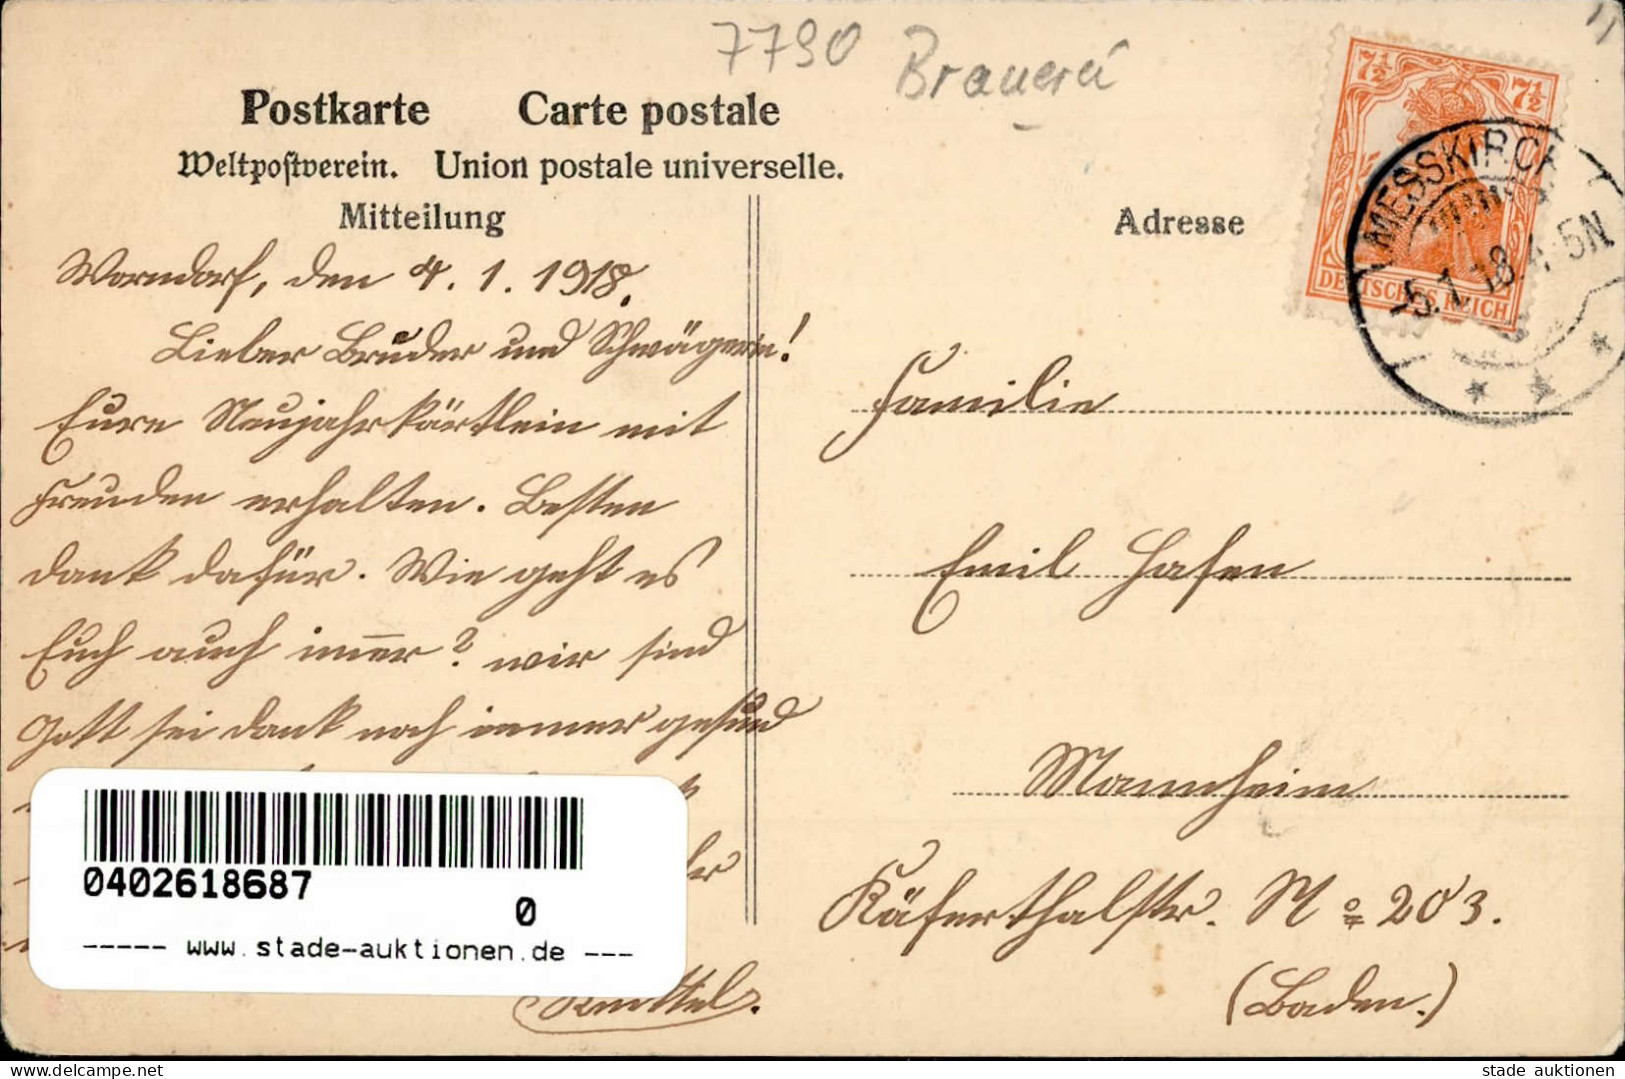 7790 Brauerei
Postkarte Carte postale
Weltpostverein. Union postale universelle.
Mitteilung
Adresse
7½ 7½
DEUTSCHES REICH
MESSKIRCH
-5.1.18.4-5N
Worndorf, den 4. 1. 1918.
Lieber Bruder und Schwägerin!
Eure Neujahrkärtlein mit
Freuden erhalten. Besten
dank dafür. Wie geht es
Euch auch im̅er? wir sind
Gott sei dank noch immer gesund
Knittel.
Familie
Emil Hafen
Mannheim
Käferthalstr. No 203.
(Baden.)
0402618687
0
----- www.stade-auktionen.de ---
stade auktionen